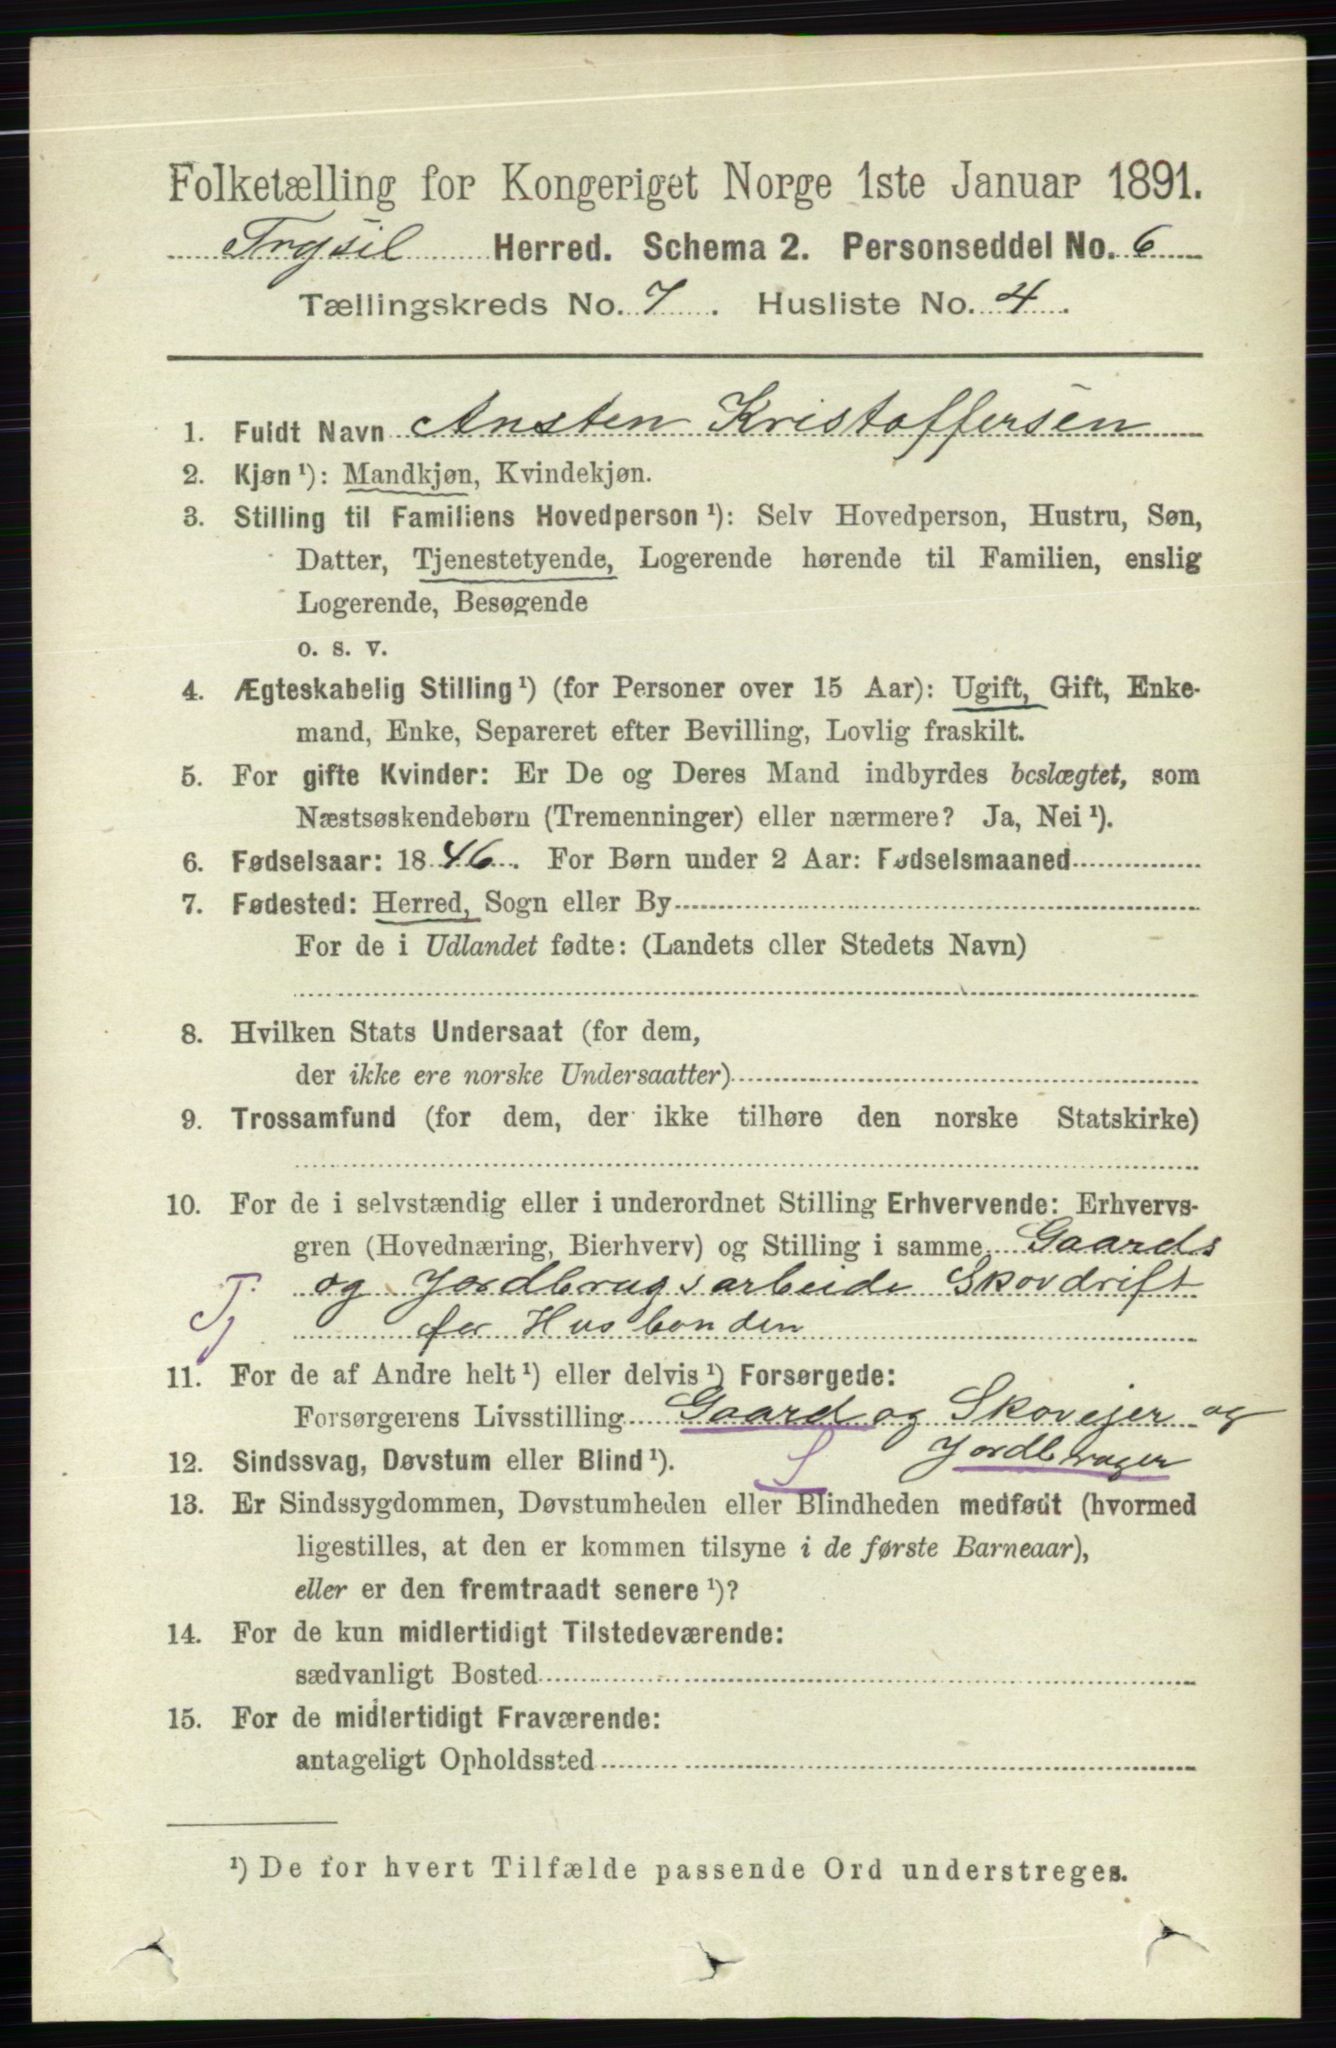 Folketælling for Kongeriget Norge 1ste Januar 1891.
Trysil Herred. Schema 2. Personseddel No. 6
Tællingskreds No. 7. Husliste No. 4.
1. Fuldt Navn Ansten Kristoffersen
2. Kjøn ¹): Mandkjøn, Kvindekjøn.
3. Stilling til Familiens Hovedperson ¹): Selv Hovedperson, Hustru, Søn,
Datter, Tjenestetyende, Logerende hørende til Familien, enslig
Logerende, Besøgende
o. s. v.
4. Ægteskabelig Stilling ¹) (for Personer over 15 Aar): Ugift, Gift, Enke-
mand, Enke, Separeret efter Bevilling, Lovlig fraskilt.
5. For gifte Kvinder: Er De og Deres Mand indbyrdes beslægtet, som
Næstsøskendebørn (Tremenninger) eller nærmere? Ja, Nei ¹).
6. Fødselsaar: 1846. For Børn under 2 Aar: Fødselsmaaned
7. Fødested: Herred, Sogn eller By
For de i Udlandet fødte: (Landets eller Stedets Navn)
8. Hvilken Stats Undersaat (for dem,
der ikke ere norske Undersaatter)
9. Trossamfund (for dem, der ikke tilhøre den norske Statskirke)
10. For de i selvstændig eller i underordnet Stilling Erhvervende: Erhvervs-
gren (Hovednæring, Bierhverv) og Stilling i samme Gaards
og Jordbrugsarbeide Skovdrift
Tj for Husbonden
11. For de af Andre helt ¹) eller delvis ¹) Forsørgede:
Forsørgerens Livsstilling Gaard og Skovejer og
12. Sindssvag, Døvstum eller Blind ¹). S Jordbruger
13. Er Sindssygdommen, Døvstumheden eller Blindheden medfødt (hvormed
ligestilles, at den er kommen tilsyne i de første Barneaar),
eller er den fremtraadt senere ¹)?
14. For de kun midlertidigt Tilstedeværende:
sædvanligt Bosted
15. For de midlertidigt Fraværende:
antageligt Opholdssted
¹) De for hvert Tilfælde passende Ord understreges.